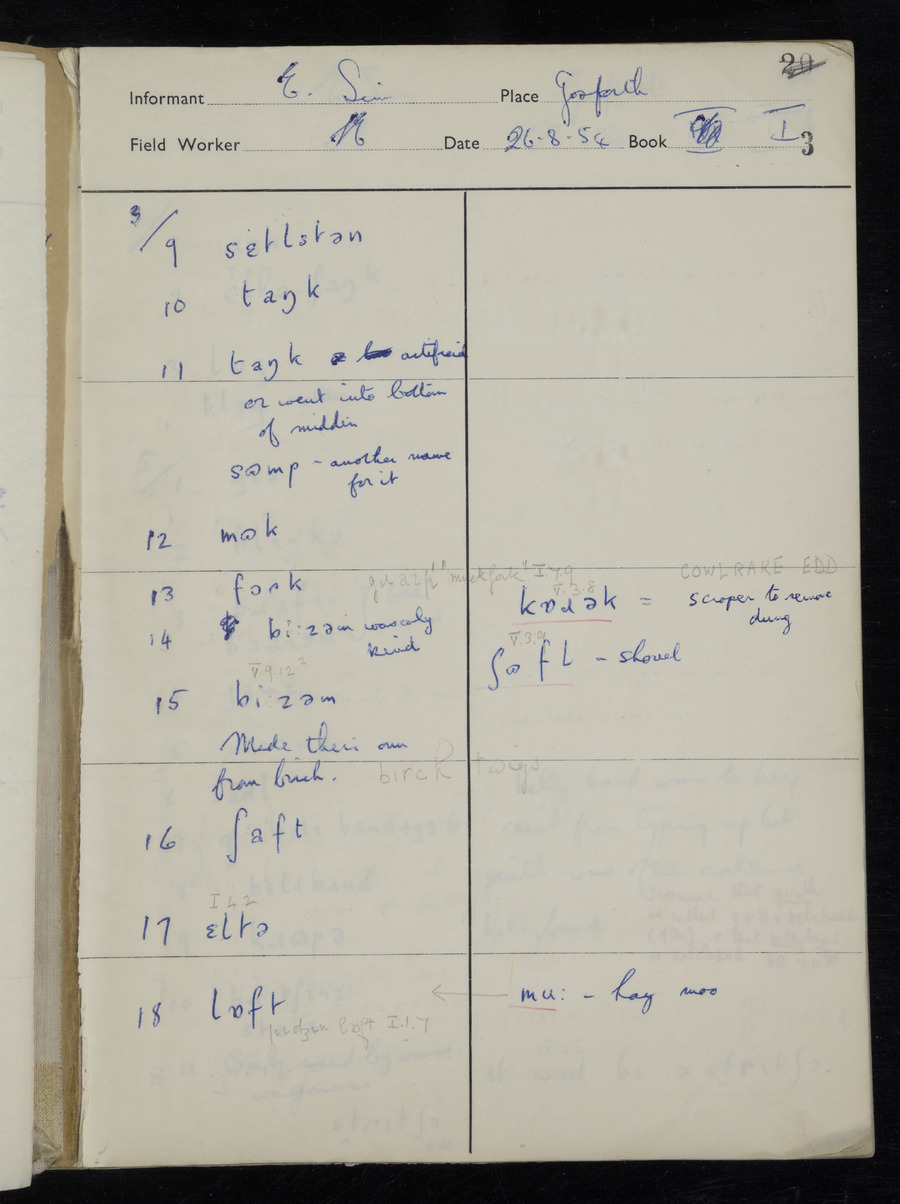 20
Informant E. Place Gosforth
Field Worker Date 26-8-54 Book I 3
3/9 sɛtlstən
10 taŋk
11 taŋk
or went into bottom
of midden
sɷmp - another name
for it
12 mɷk
13 fɔrk "muckfork" I.7.9
14 bi:zəm was only
kind
V.9.12
15 bi:zəm
Made their own
from birch. birch twigs
16 ʃaft
I.4.2
17 ɛltə
18 lɒft
I.1.7
COWLRAKE EDD
V.3.8
= scraper to remove
dung
V.3.9
ʃɷfl - shovel
mu: - hay moo